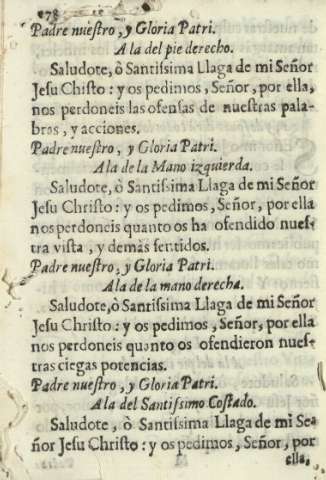 178
Padre nueſtro, y Gloria Patri.
A la del pie derecho.
Saludote, ò Santiſsima Llaga de mi Señor
Jeſu Chiſto: y os pedimos, Señor, por ella,
nos perdoneis las ofenſas de nueſtras pala-
bras, y acciones.
Padre nueſtro, y Gloria Patri.
A la de la Mano izquierda.
Saludote, ò Santiſsima Llaga de mi Señor
Jeſu Chriſto: y os pedimos, Señor, por ella
nos perdoneis quanto os ha ofendido nueſ-
tra viſta, y demàs ſentidos.
Padre nueſtro, y Gloria Patri.
A la de la mano derecha.
Saludote, ò Santiſsima Llaga de mi Señor
Jeſu Chriſto: y os pedimos, Señor, por ella
nos perdoneis quanto os ofendieron nueſ-
tras ciegas potencias.
Padre nueſtro, y Gloria Patri.
A la del Santiſsimo Coſtado.
Saludote, ò Santiſsima Llaga de mi Se-
ñor Jeſu Chriſto: y os pedimos, Señor, por
ella,